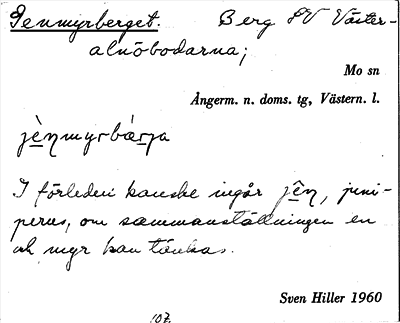 Jenmyrberget. Berg SV Väster-
alnöbodarna;
Mo sn
Ångerm. n. doms. tg, Västern. l.
jènmyrbær̀ja
I förleden kanske ingår jên, juni-
perus, om sammanställningen en
och myr kan tänkas.
Sven Hiller 1960
107